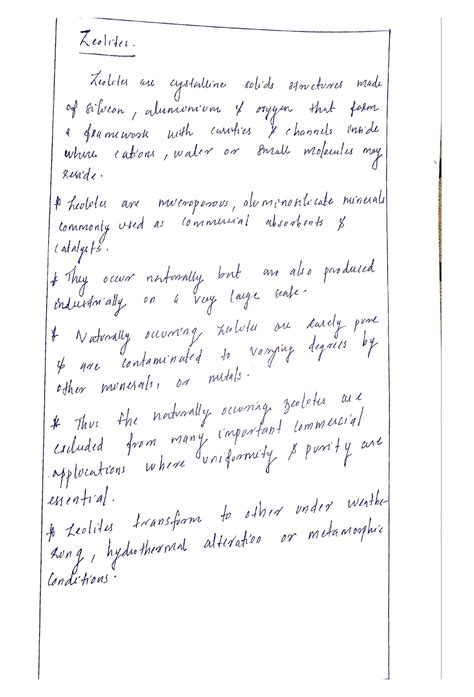 Zeolites.
Zeolites are crystalline solids structures made
of silicon, aluminium & oxygen that form
a framework with cavities & channels inside
where cations, water or small molecules may
reside.
* Zeolites are microporous, aluminosilicate minerals
commonly used as commercial absorbents &
catalysts.
* They occur naturally but are also produced
industrially on a very large scale.
* Naturally occuring zeolites are rarely pure
& are contaminated to varying degrees by
other minerals, or metals.
* Thus the naturally occuring zeolites are
excluded from many important commercial
applications where uniformity & purity are
essential.
* Zeolites transform to other under weathe
ring, hydrothermal alteration or metamorphic
conditions.